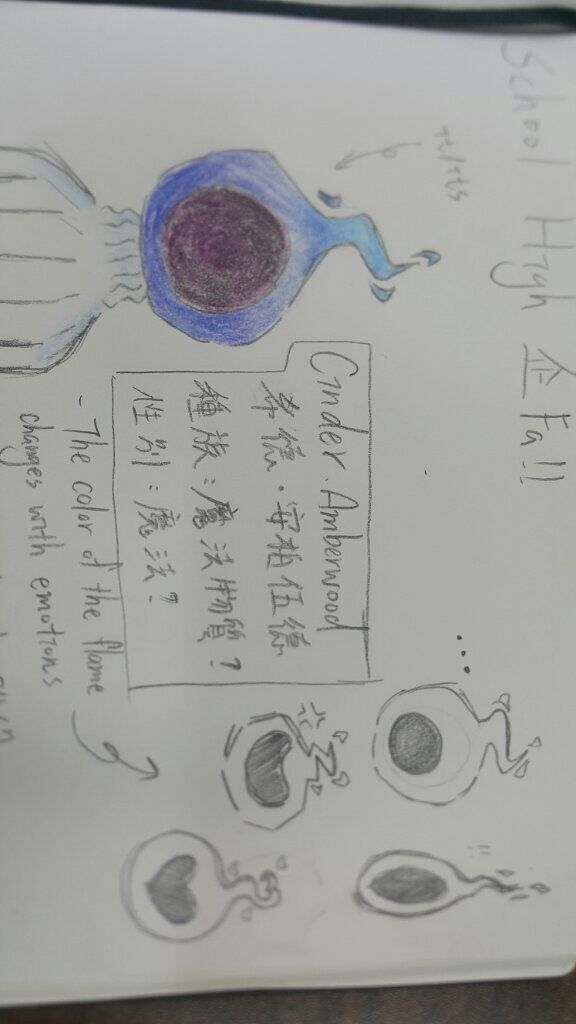 School High 企Fall
Cinder.Amberwood
辛德·安柏伍德
種族：魔法物質？
性別：魔法？
- The color of the flame
changes with emotions
...
!!